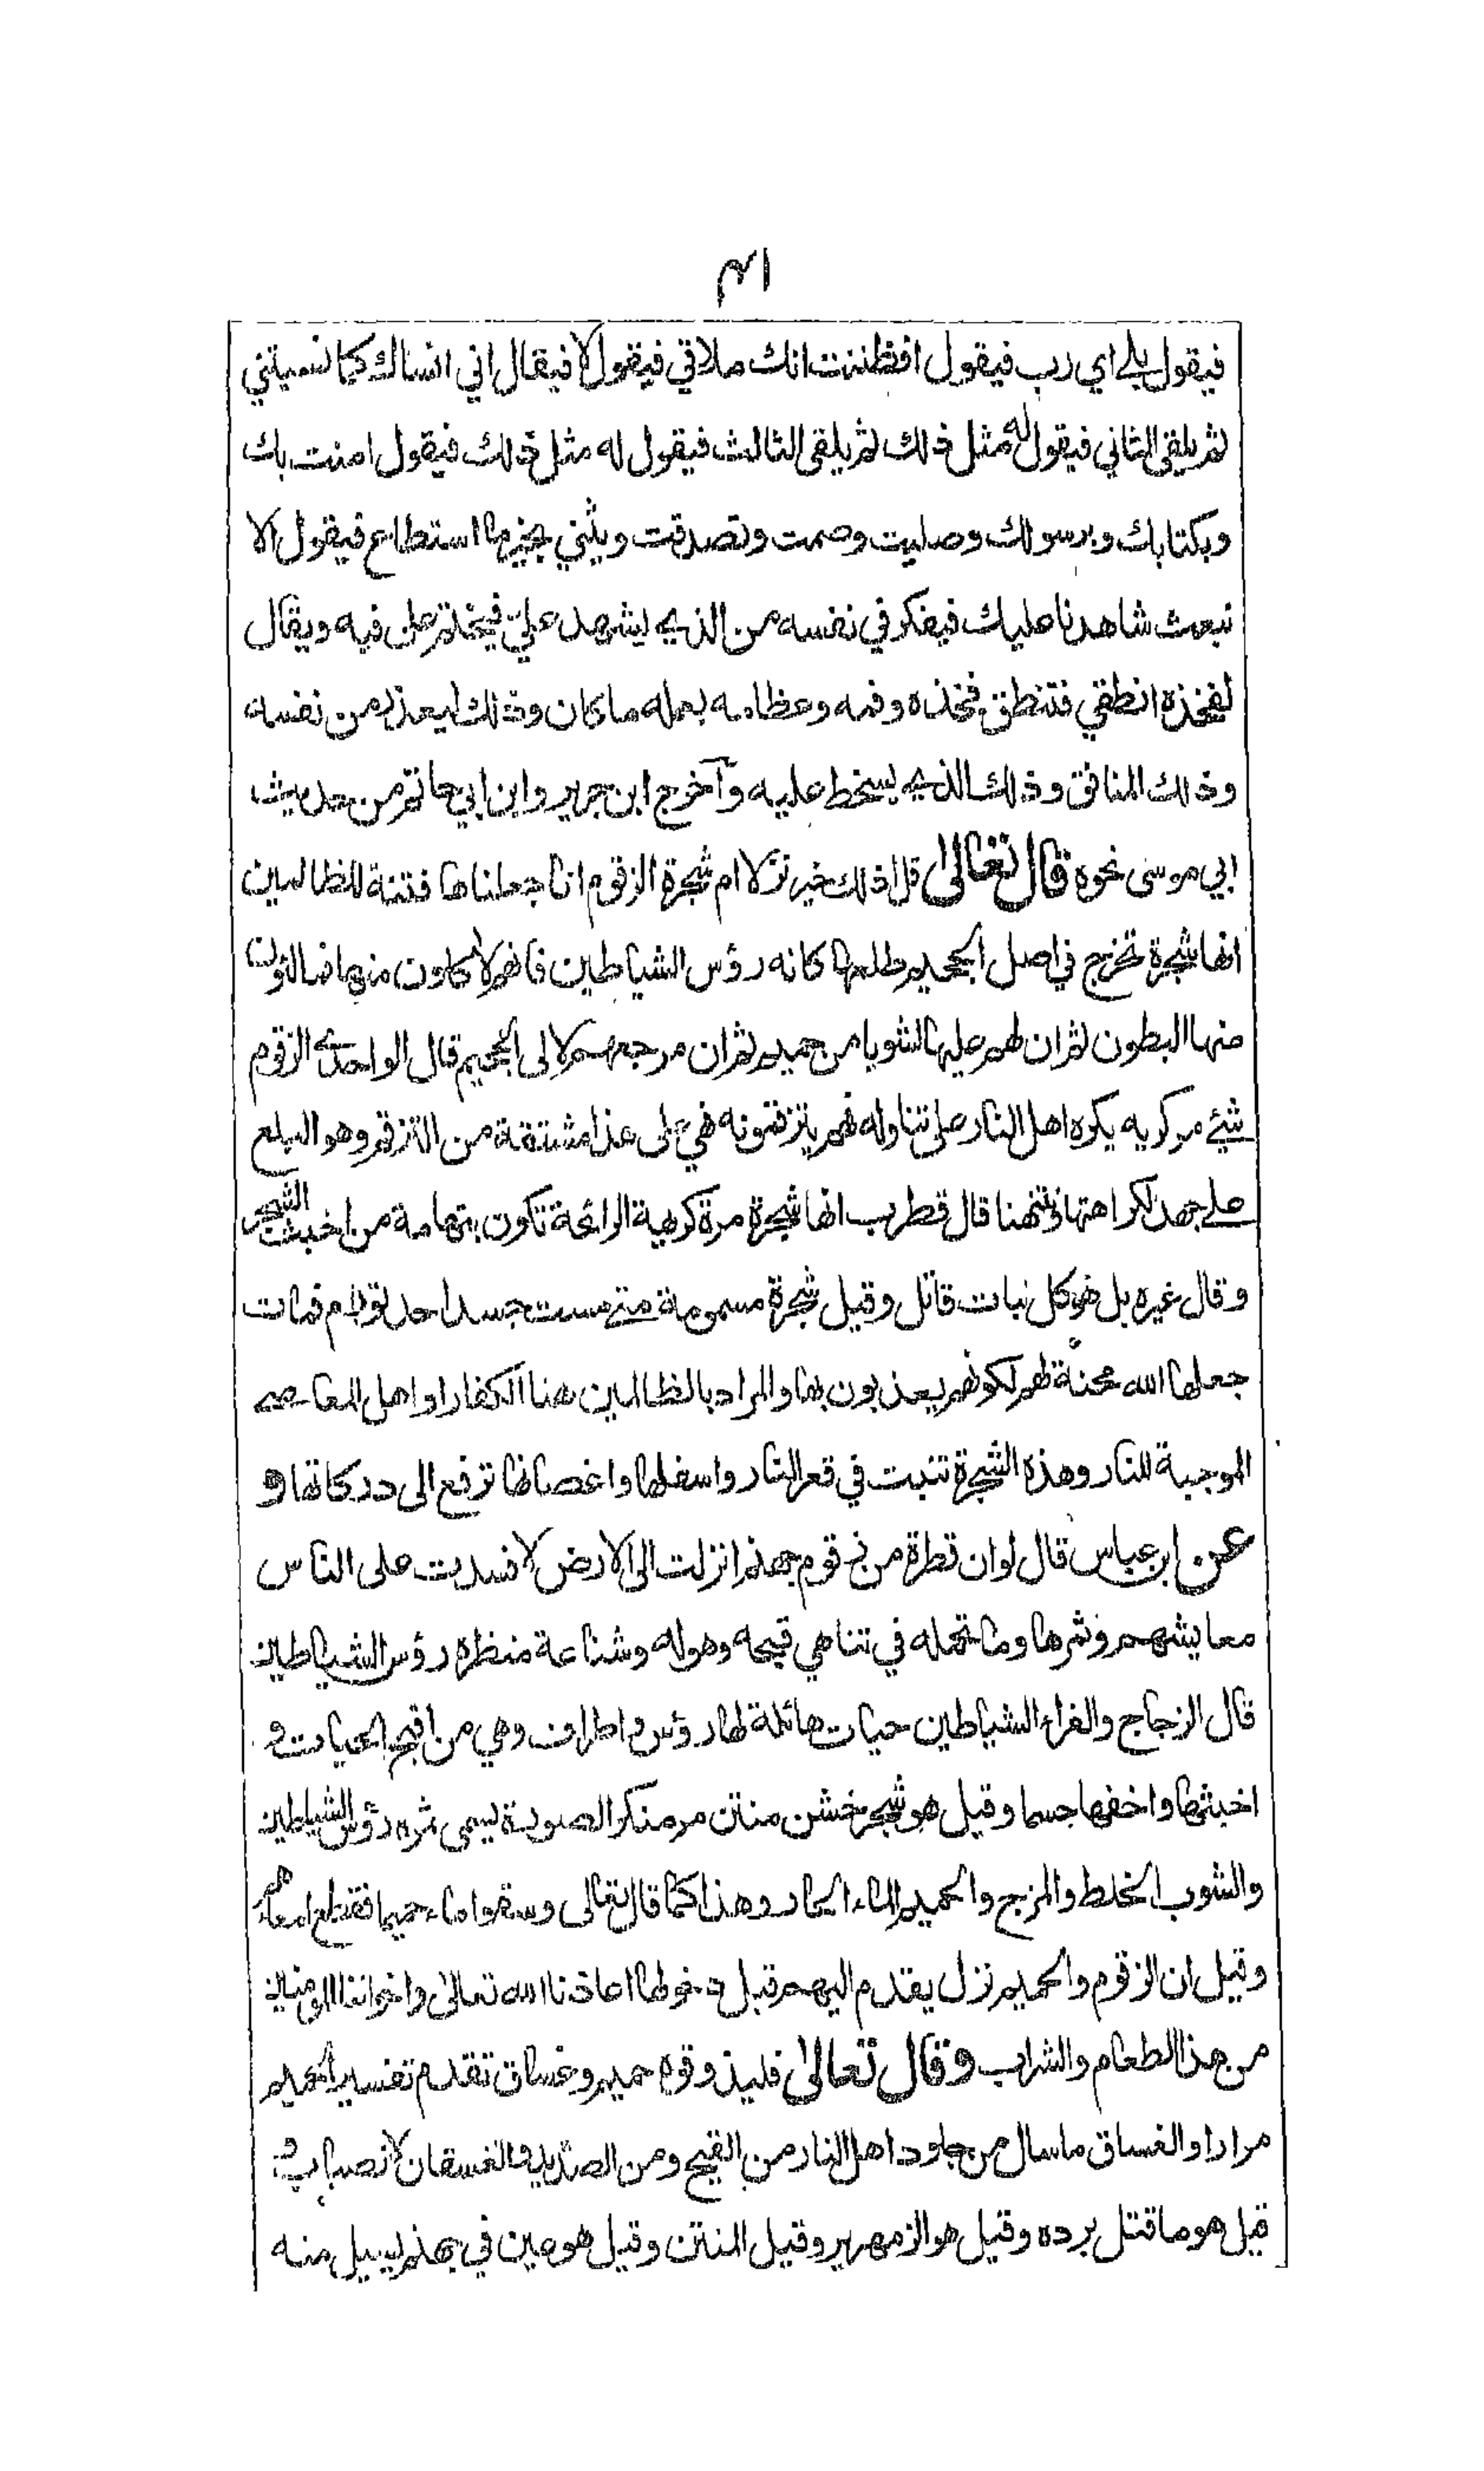 ٤١
فيقول بلے اي رب فيقول افظننت انك ملاقي فيقول لا فيقال اني انساك كما نسيتني
ثم يلقى الثاني فيقول له مثل ذلك ثم يلقى الثالث فيقول له مثل ذلك فيقول امنت بك
وبكتابك وبرسولك وصليت وصمت وتصدقت ويثني بخير ما استطاع فيقول الا
نبعث شاهدنا عليك فيفكر في نفسه من الذي يشهد علي فيختم على فيه ويقال
لفخذه انطقي فتنطق فخذه وفمه وعظامه بعمله ما كان وذلك ليعذر من نفسه
وذلك المنافق وذلك الذي يسخط عليه وآخرج ابن جرير وابن ابي حاتم من حديث
ابي موسى نحوه قال تعالى قل اذلك خير نزلا ام شجرة الزقوم انا جعلناها فتنة للظالمين
انها شجرة تخرج في اصل الجحيم طلعها كانه رؤس الشياطين فانهم لاكلون منها فمالؤن
منها البطون ثم ان لهم عليها لشوبا من حميم ثم ان مرجعهم لالى الجحيم قال الواحدي الزقوم
شيئ مر كريه يكره اهل النار على تناوله فهم يتزقمونه فهي على هذا مشتقة من التزقم وهو البلع
على جهد لكراهتها ونتنها قال قطرب انها شجرة مرة كريهة الرائحة تكون بتهامة من اخبث الشجر
وقال غيره بل هو كل نبات قاتل وقيل شجرة مسمومة متى مست جسد احد تورم فمات
جعلها الله محنة لهم لكونهم يعذبون بها والمراد بالظالمين هنا الكفار او اهل المعاصي
الموجبة للنار وهذه الشجرة تنبت في قعر النار واسفلها واغصانها ترفع الى دركاتها و
عن ابن عباس قال لو ان قطرة من زقوم جهنم انزلت الى الارض لافسدت على الناس
معايشهم وثمرها وما تحمله في تناهي قبحه وهوله وشناعة منظره رؤس الشياطين
قال الزجاج والفراء الشياطين حيات هائلة لها رؤس واطراف وهي من اقبح الحيات و
اخبثها واخفها جسما وقيل هو شجر خشن منتن مر منكر الصورة يسمى ثمره رؤس الشياطين
والشوب الخلط والمزج والحميم الماء الحار وهذا كما قال تعالى وسقوا ماء حميما فقطع امعاءهم
وقيل ان الزقوم والحميم نزل يقدم اليهم قبل دخولها اعاذنا الله تعالى واخواننا المؤمنين
من هذا الطعام والشراب وقال تعالى فليذوقوه حميم وغساق تقدم تفسير الحميم
مرارا والغساق ما سال من جلود اهل النار من القيح ومن الصديد والغسقان لانصباب و
قيل هو ما قتل برده وقيل هو الزمهرير وقيل المنتن وقيل هو عين في جهنم يسيل منه